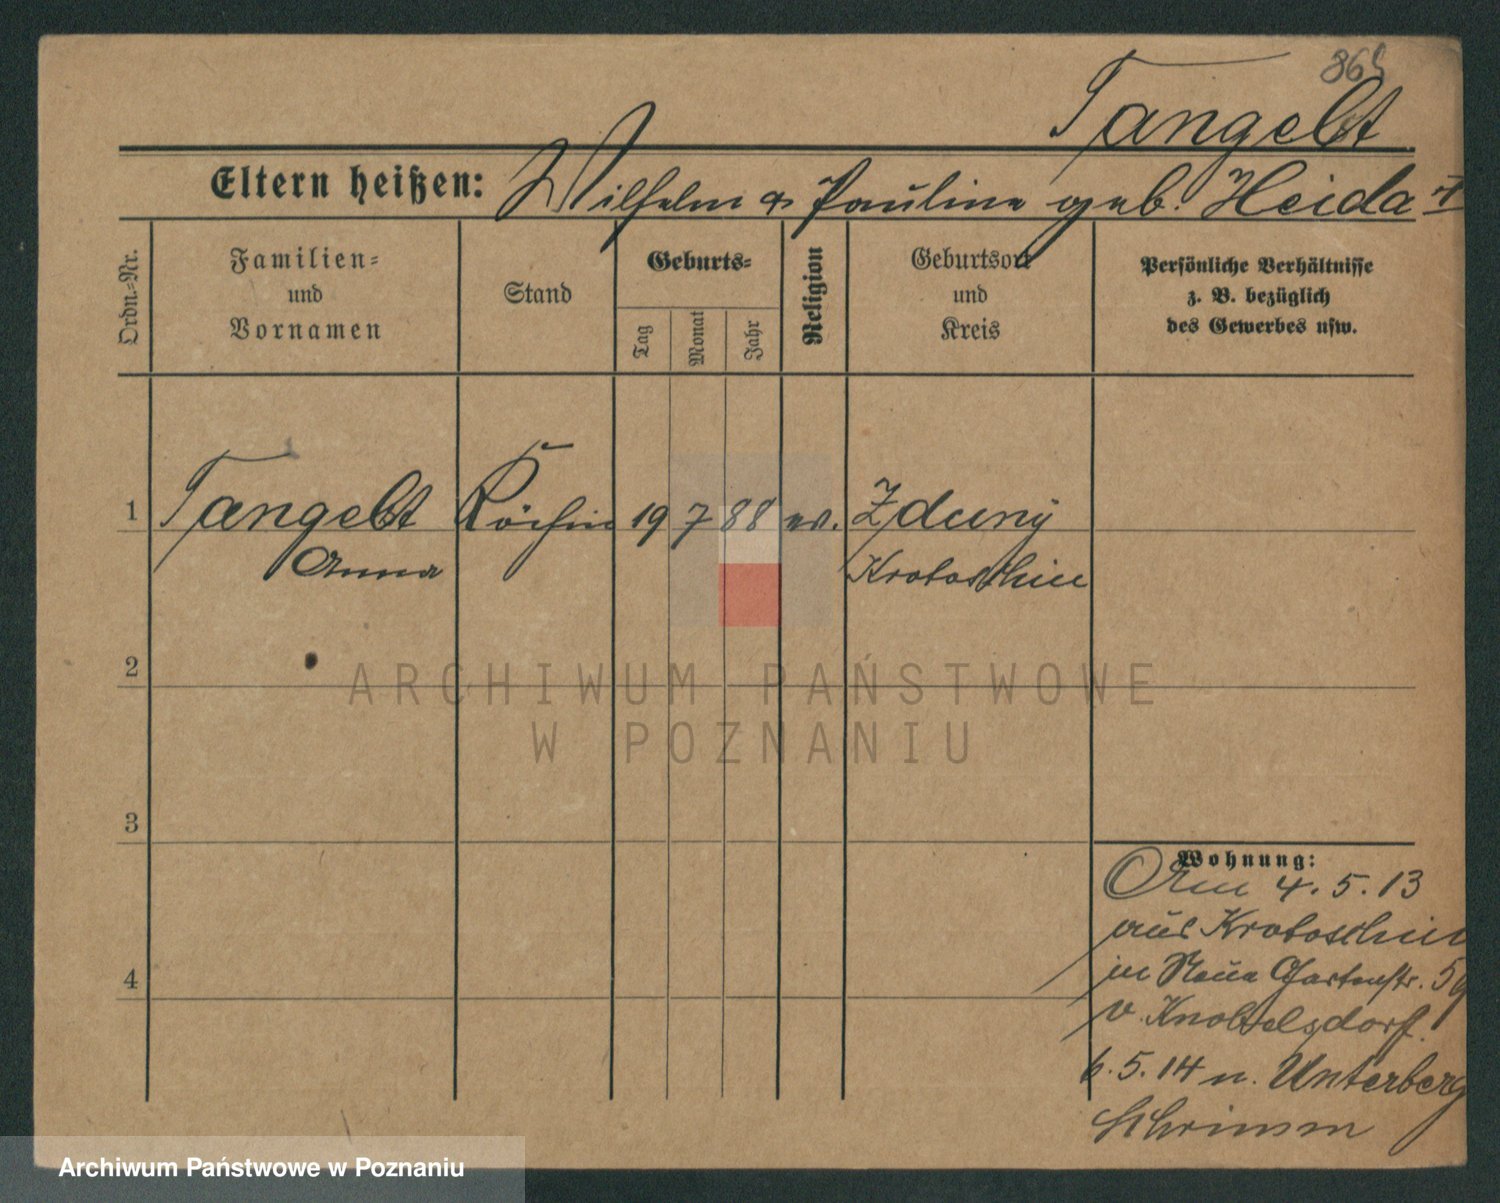 Tangelst
Eltern heißen: Wilhelm & Pauline geb. Heida
Ordn.-Nr.
Familien-
und
Vornamen
Stand
Geburts-
Tag
Monat
Jahr
Religion
Geburtsort
und
Kreis
Persönliche Verhältnisse
z. B. bezüglich
des Gewerbes usw.
1 Tangelst Köchin 19 7 88 ev. Zduny
Anna Krotoschin
2
3
4
Wohnung:
Am 4. 5. 13
aus Krotoschin
in Neue Gartenstr. 59
v. Knobelsdorf.
6. 5. 14 n. Unterberg
Schrimm
ARCHIWUM PAŃSTWOWE
W POZNANIU
Archiwum Państwowe w Poznaniu